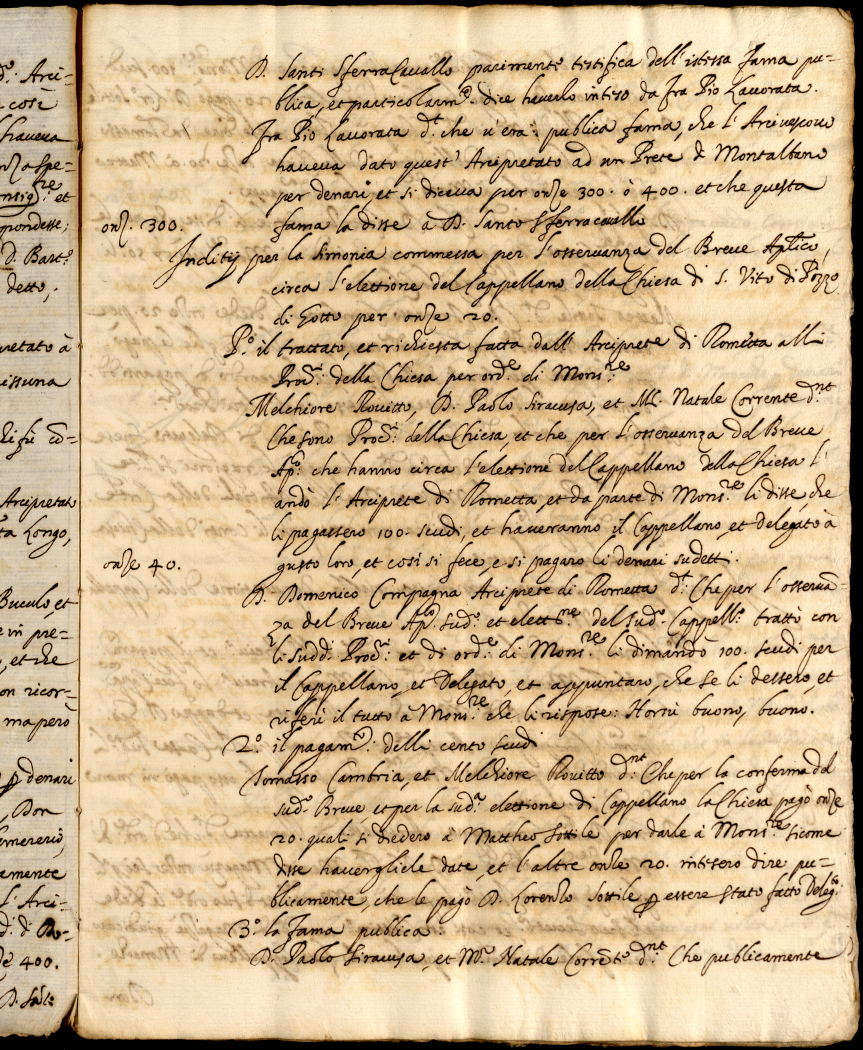 d.º Arci=
cosi
haveva
onze spe=
et
spondesse;
d. Bart.º
detto;
pretato à
nissuna
di fù cō=
Arcipretato
ta Longo,
Buculo, et
e in pre=
, et che
on ricor=
ma però
ꝑ denari
, Don
amente
l'Arci=
d.i di Ro=
de 400.
D. Sālt:
D. Santi Sferracavallo parimente testifica dell'istessa fama pu=
blica, et particolarm.te dice haverlo inteso da fra Pio Lavorata.
fra Pio Lavorata d.t che v'era publica fama, che l'Arcivescovo
haveva dato quest'Arcipretato ad un Prete di Montalbano
per denari, et si diceva per onze 300. ò 400. et che questa
onz. 300.
fama la disse à D. Santo Sferracavallo
Inditij per la simonia commessa per l'osservanza del Breve Ap̄lico,
circa l'elettione del Cappellano della Chiesa di S. Vito di Pozzo
di Gotto per onze 20.
P.º il trattato, et richiesta fatta dall'Arciprete di Rometta alli
Proc.ri della Chiesa per ord.e di Mons.re
Melchiore Rovitto, D. Paolo Siracusa, et M. Natale Corrente d.nt
Che sono Proc.ri della Chiesa, et che per l'osservanza del Breve
Ap.co che hanno circa l'elettione del Cappellano della Chiesa l'
andò l'Arciprete di Rometta, et da parte di Mons.re li disse, che
li pagassero 100. scudi, et haveranno il Cappellano, et delegato à
onze 40.
gusto loro, et così si fece, e si pagaro li denari sudetti.
D. Domenico Compagna Arciprete di Rometta d.t Che per l'osservā=
za del Breve Ap.lco sud.º et elett.ne del sud.º Cappell.º trattò con
li sudd.i Proc.ri et di ord.e di Mons.re li dimandò 100. scudi per
il Cappellano, et Delegato, et appuntaro, che se li dessero, et
riferì il tutto à Mons.re che li rispose: Horsù buono, buono.
2.º il pagam.to delli cento scudi
Tomasso Cambria, et Melchiore Rovitto d.nt Che per la conferma del
sud.º Breve, et per la sud.a elettione di Cappellano la Chiesa pagò onze
20. quali si diedero à Mattheo Sottile per darle à Mons.re sicome
disse havergliele date, et l'altre onze 20. intesero dire pu=
blicamente, che le pagò D. Lorenzo Sottile ꝑ essere stato fatto Deleg.to
3.º la fama publica.
D. Paolo Siracusa, et M.º Natale Corrēte d.nt Che publicamente